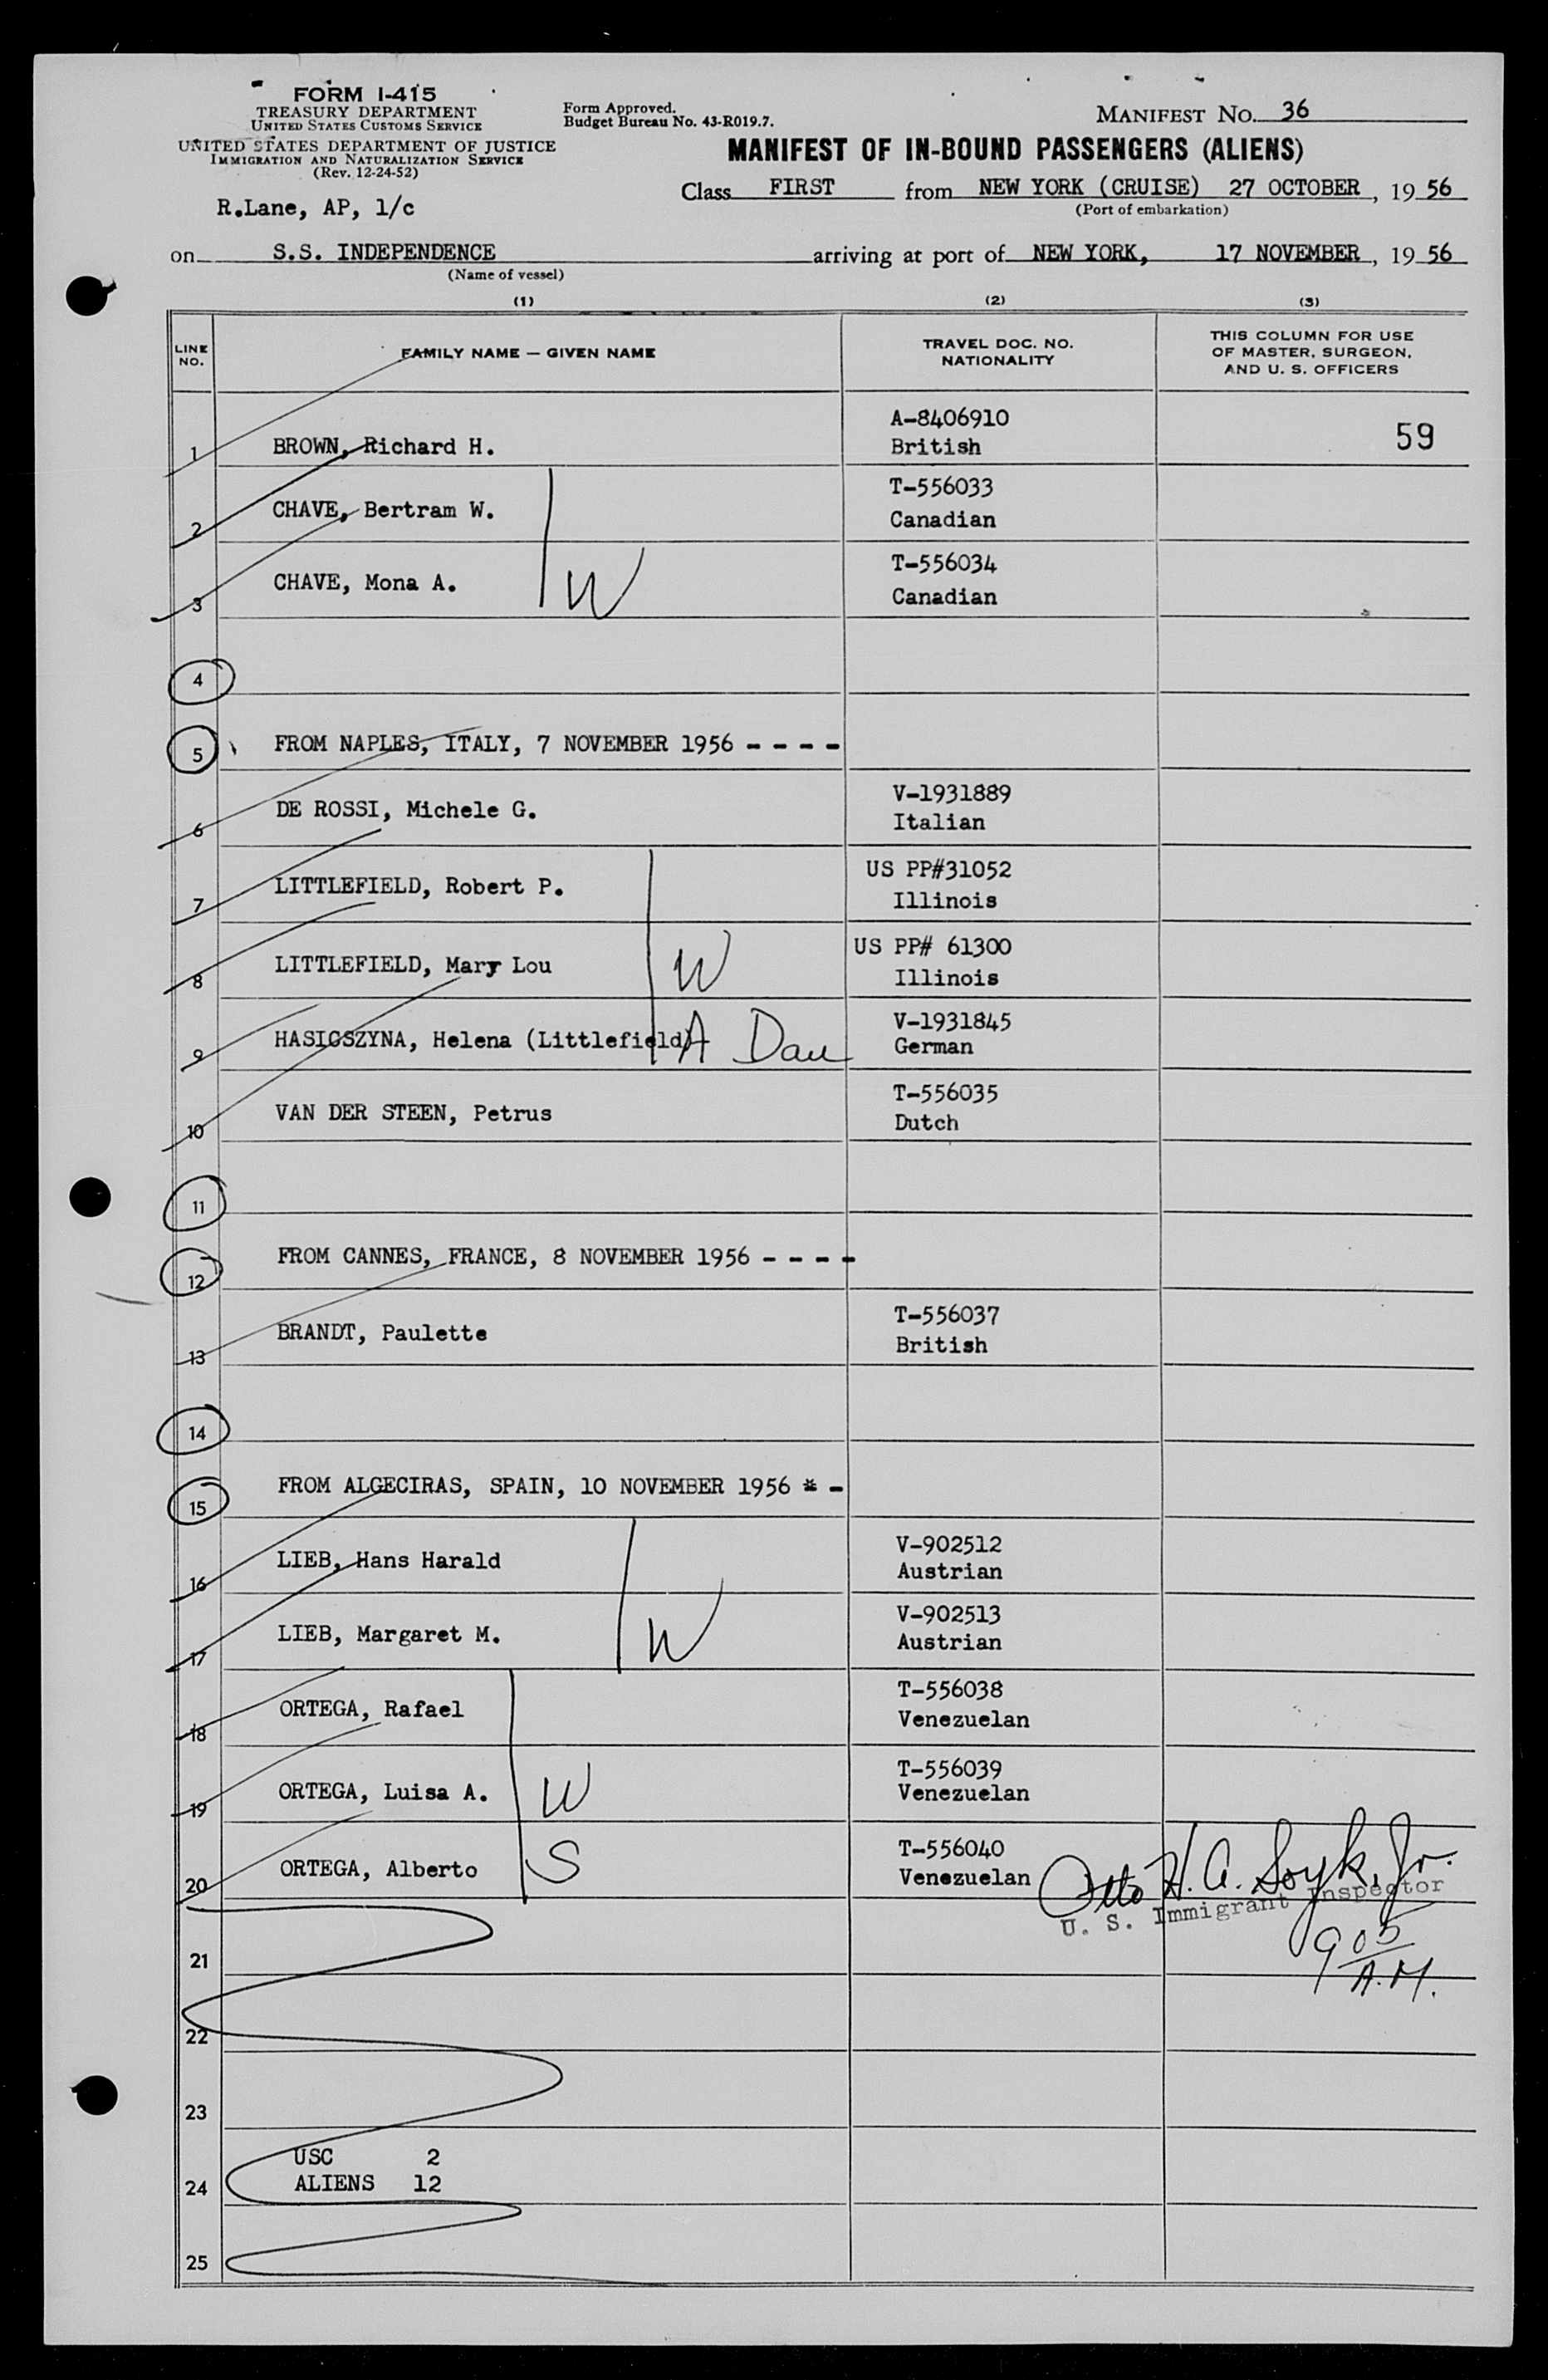 FORM I-415
TREASURY DEPARTMENT
UNITED STATES CUSTOMS SERVICE
UNITED STATES DEPARTMENT OF JUSTICE
IMMIGRATION AND NATURALIZATION SERVICE
(Rev. 12-24-52)
R.Lane, AP, 1/c
Form Approved.
Budget Bureau No. 43-R019.7.
MANIFEST NO. 36
MANIFEST OF IN-BOUND PASSENGERS (ALIENS)
Class FIRST from NEW YORK (CRUISE) 27 OCTOBER, 19 56
(Port of embarkation)
on S.S. INDEPENDENCE arriving at port of NEW YORK, 17 NOVEMBER, 19 56
(Name of vessel)
(1) (2) (3)
LINE NO.
FAMILY NAME — GIVEN NAME
TRAVEL DOC. NO.
NATIONALITY
THIS COLUMN FOR USE
OF MASTER, SURGEON,
AND U. S. OFFICERS
1 BROWN, Richard H. A-8406910
British
59
2 CHAVE, Bertram W. T-556033
Canadian
3 CHAVE, Mona A. W T-556034
Canadian
4
5 FROM NAPLES, ITALY, 7 NOVEMBER 1956 - - - -
6 DE ROSSI, Michele G. V-1931889
Italian
7 LITTLEFIELD, Robert P. US PP#31052
Illinois
8 LITTLEFIELD, Mary Lou W US PP# 61300
Illinois
9 HASIOSZYNA, Helena (Littlefield) A Dau V-1931845
German
10 VAN DER STEEN, Petrus T-556035
Dutch
11
12 FROM CANNES, FRANCE, 8 NOVEMBER 1956 - - - -
13 BRANDT, Paulette T-556037
British
14
15 FROM ALGECIRAS, SPAIN, 10 NOVEMBER 1956 * -
16 LIEB, Hans Harald V-902512
Austrian
17 LIEB, Margaret M. W V-902513
Austrian
18 ORTEGA, Rafael T-556038
Venezuelan
19 ORTEGA, Luisa A. W T-556039
Venezuelan
20 ORTEGA, Alberto S T-556040
Venezuelan
Otto H. A. Soyk, Jr.
U. S. Immigrant Inspector
905
A.M.
21
22
23
24 USC 2
ALIENS 12
25